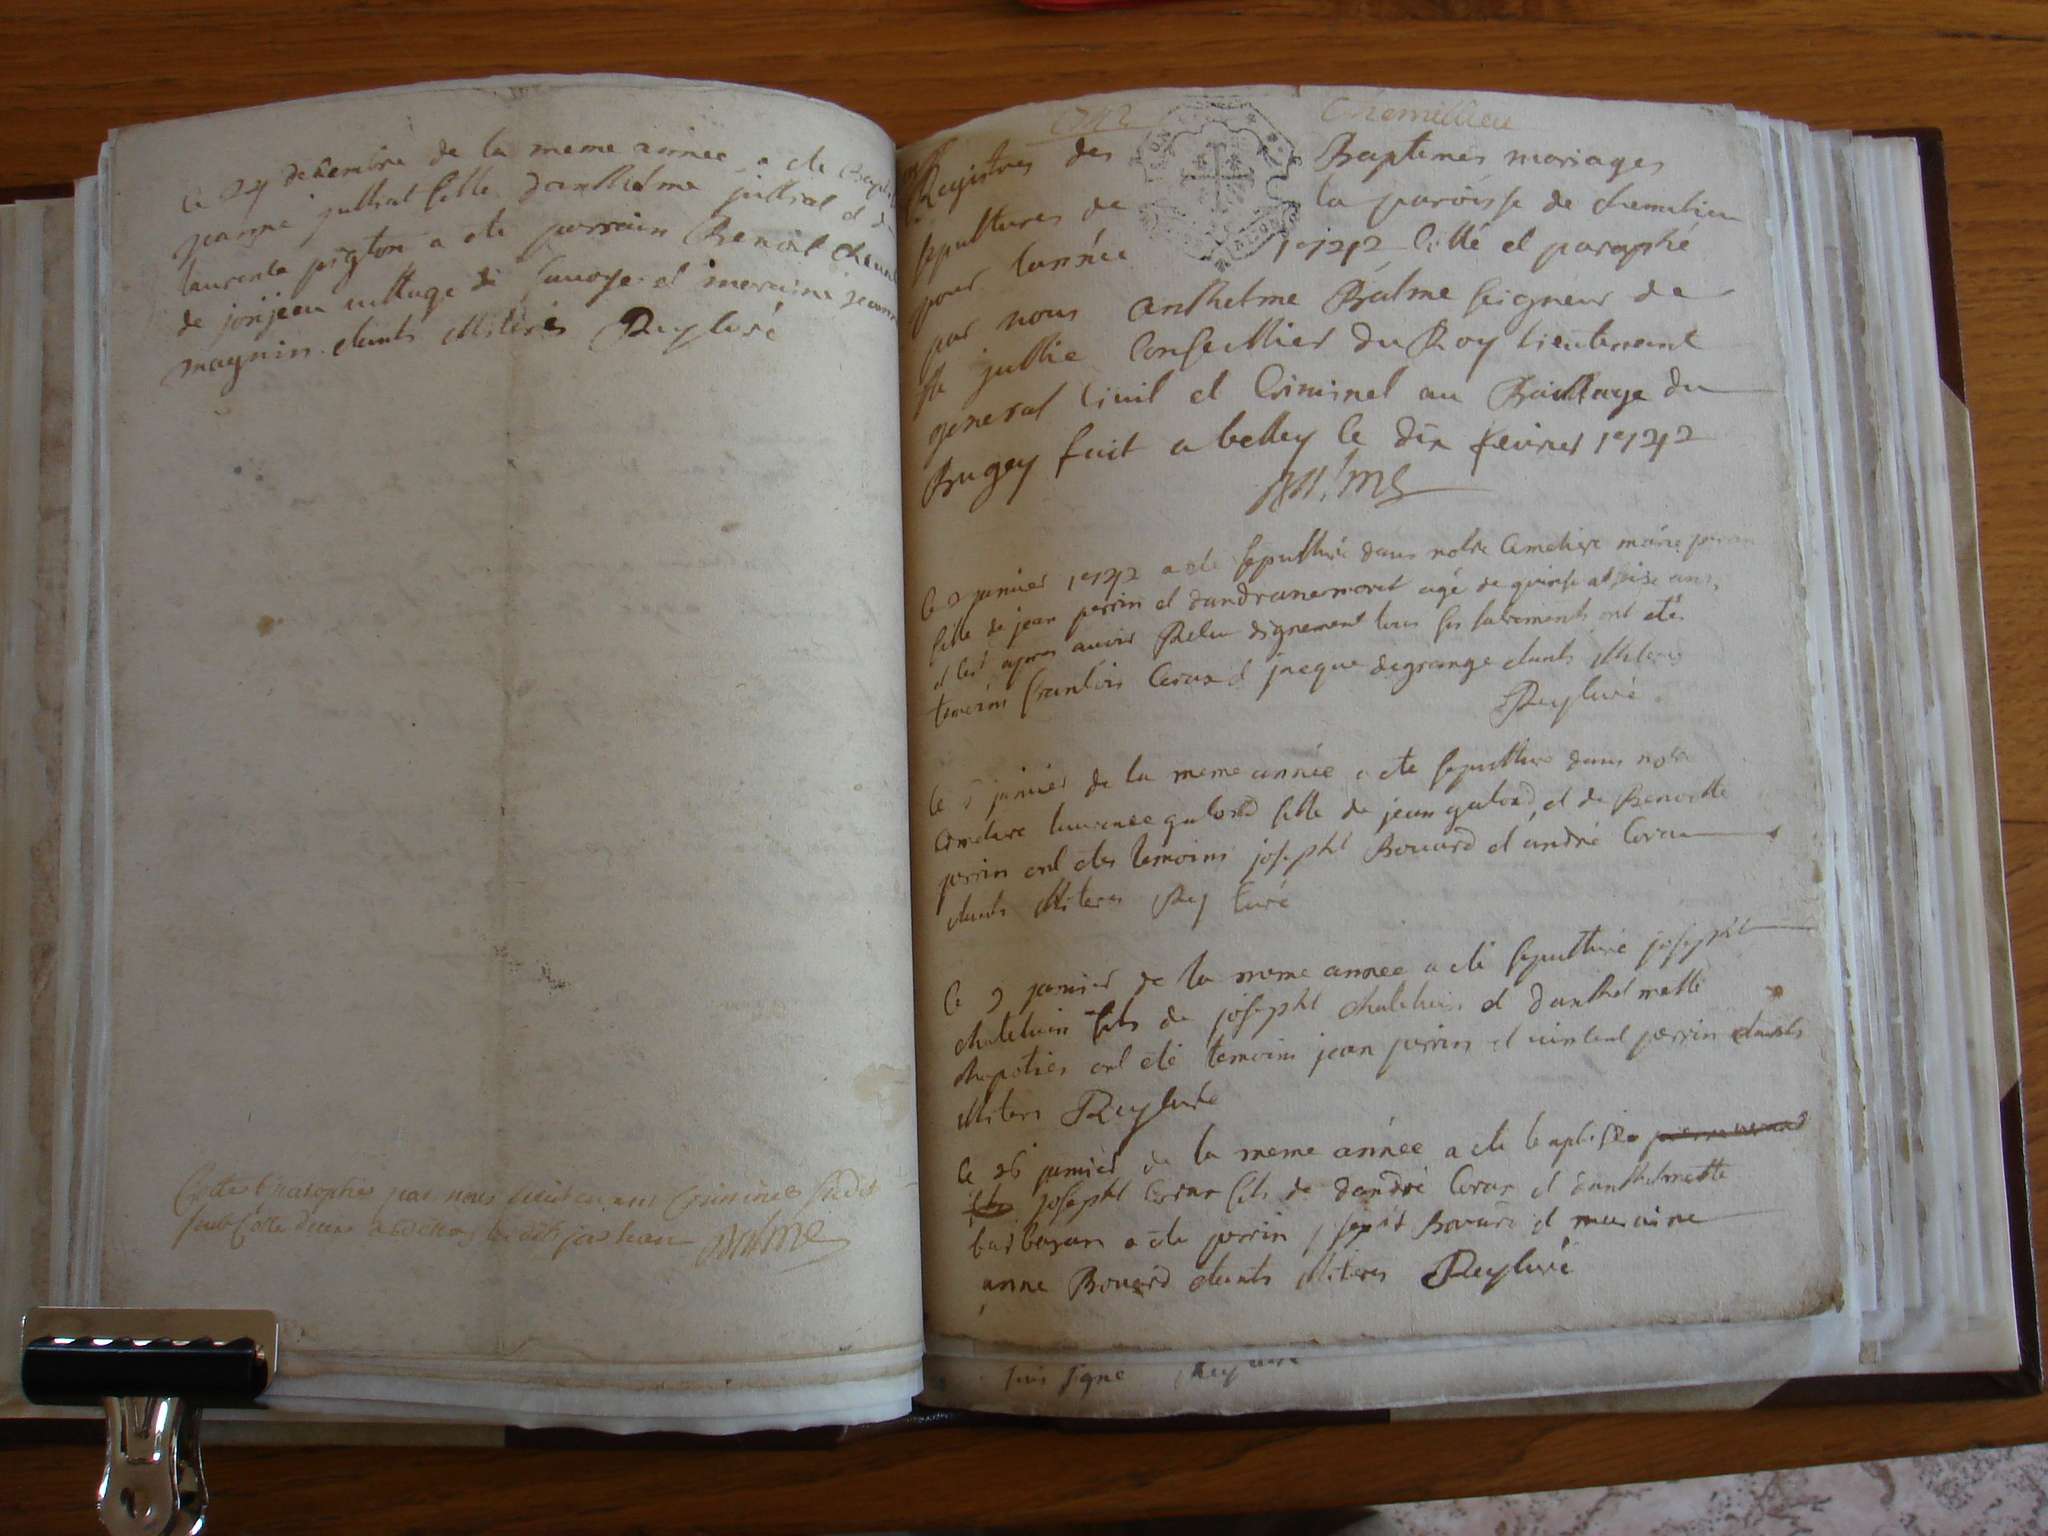 Le 24 decembre de la meme année a ete
jeanne jullial fille danthelme jullial et de
laurente pigton a ete parrain Benoit
de village de Savoye et meraine jeanne
magnin etants illiteres Rey curé
Cottes et paraphés par nous lieutenant Criminel
Balme
1742
Chemillieu
Registres des Baptemes mariages
sepultures de la paroisse de chemilieu
pour lannée 1742 cotté et paraphé
par nous anthelme Balme seigneur de
ste jullie Conseillier du Roy lieutenant
general Civil et Criminel au Bailliage du
Bugey fait a belley le dix fevrier 1742
Balme
le 2 janvier 1742 a ete sepulturé dans notre Cemetiere marie perrin
fille de jean perrin et dandreane moret agé de quinse a seise ans
et ce apres avoir Recu dignement tous ses sacrements ont etés
temoins francois Cerax et jacque degrange etants illiteres
Rey curé
le 5 janvier de la meme année a ete sepulturé dans notre
Cemetiere laurence galord fille de jean galord et de Benoitte
perrin ont etes temoins josepht Bouard et andre Cerax
etants illiteres Rey curé
le 9 janvier de la meme année a eté sepulturé josepht
chatelain fils de josepht chatelain et danthelmette
chapotier ont eté temoins jean perrin et vincent perrin etants
illiteres Rey curé
le 26 janvier de la meme année a ete baptisé
josepht Cerax fils de dandré Cerax et danthelmette
barbaran a ete perrin josepht Bouard et maraine
anne Bouard etants illiteres Rey curé
signe Rey curé